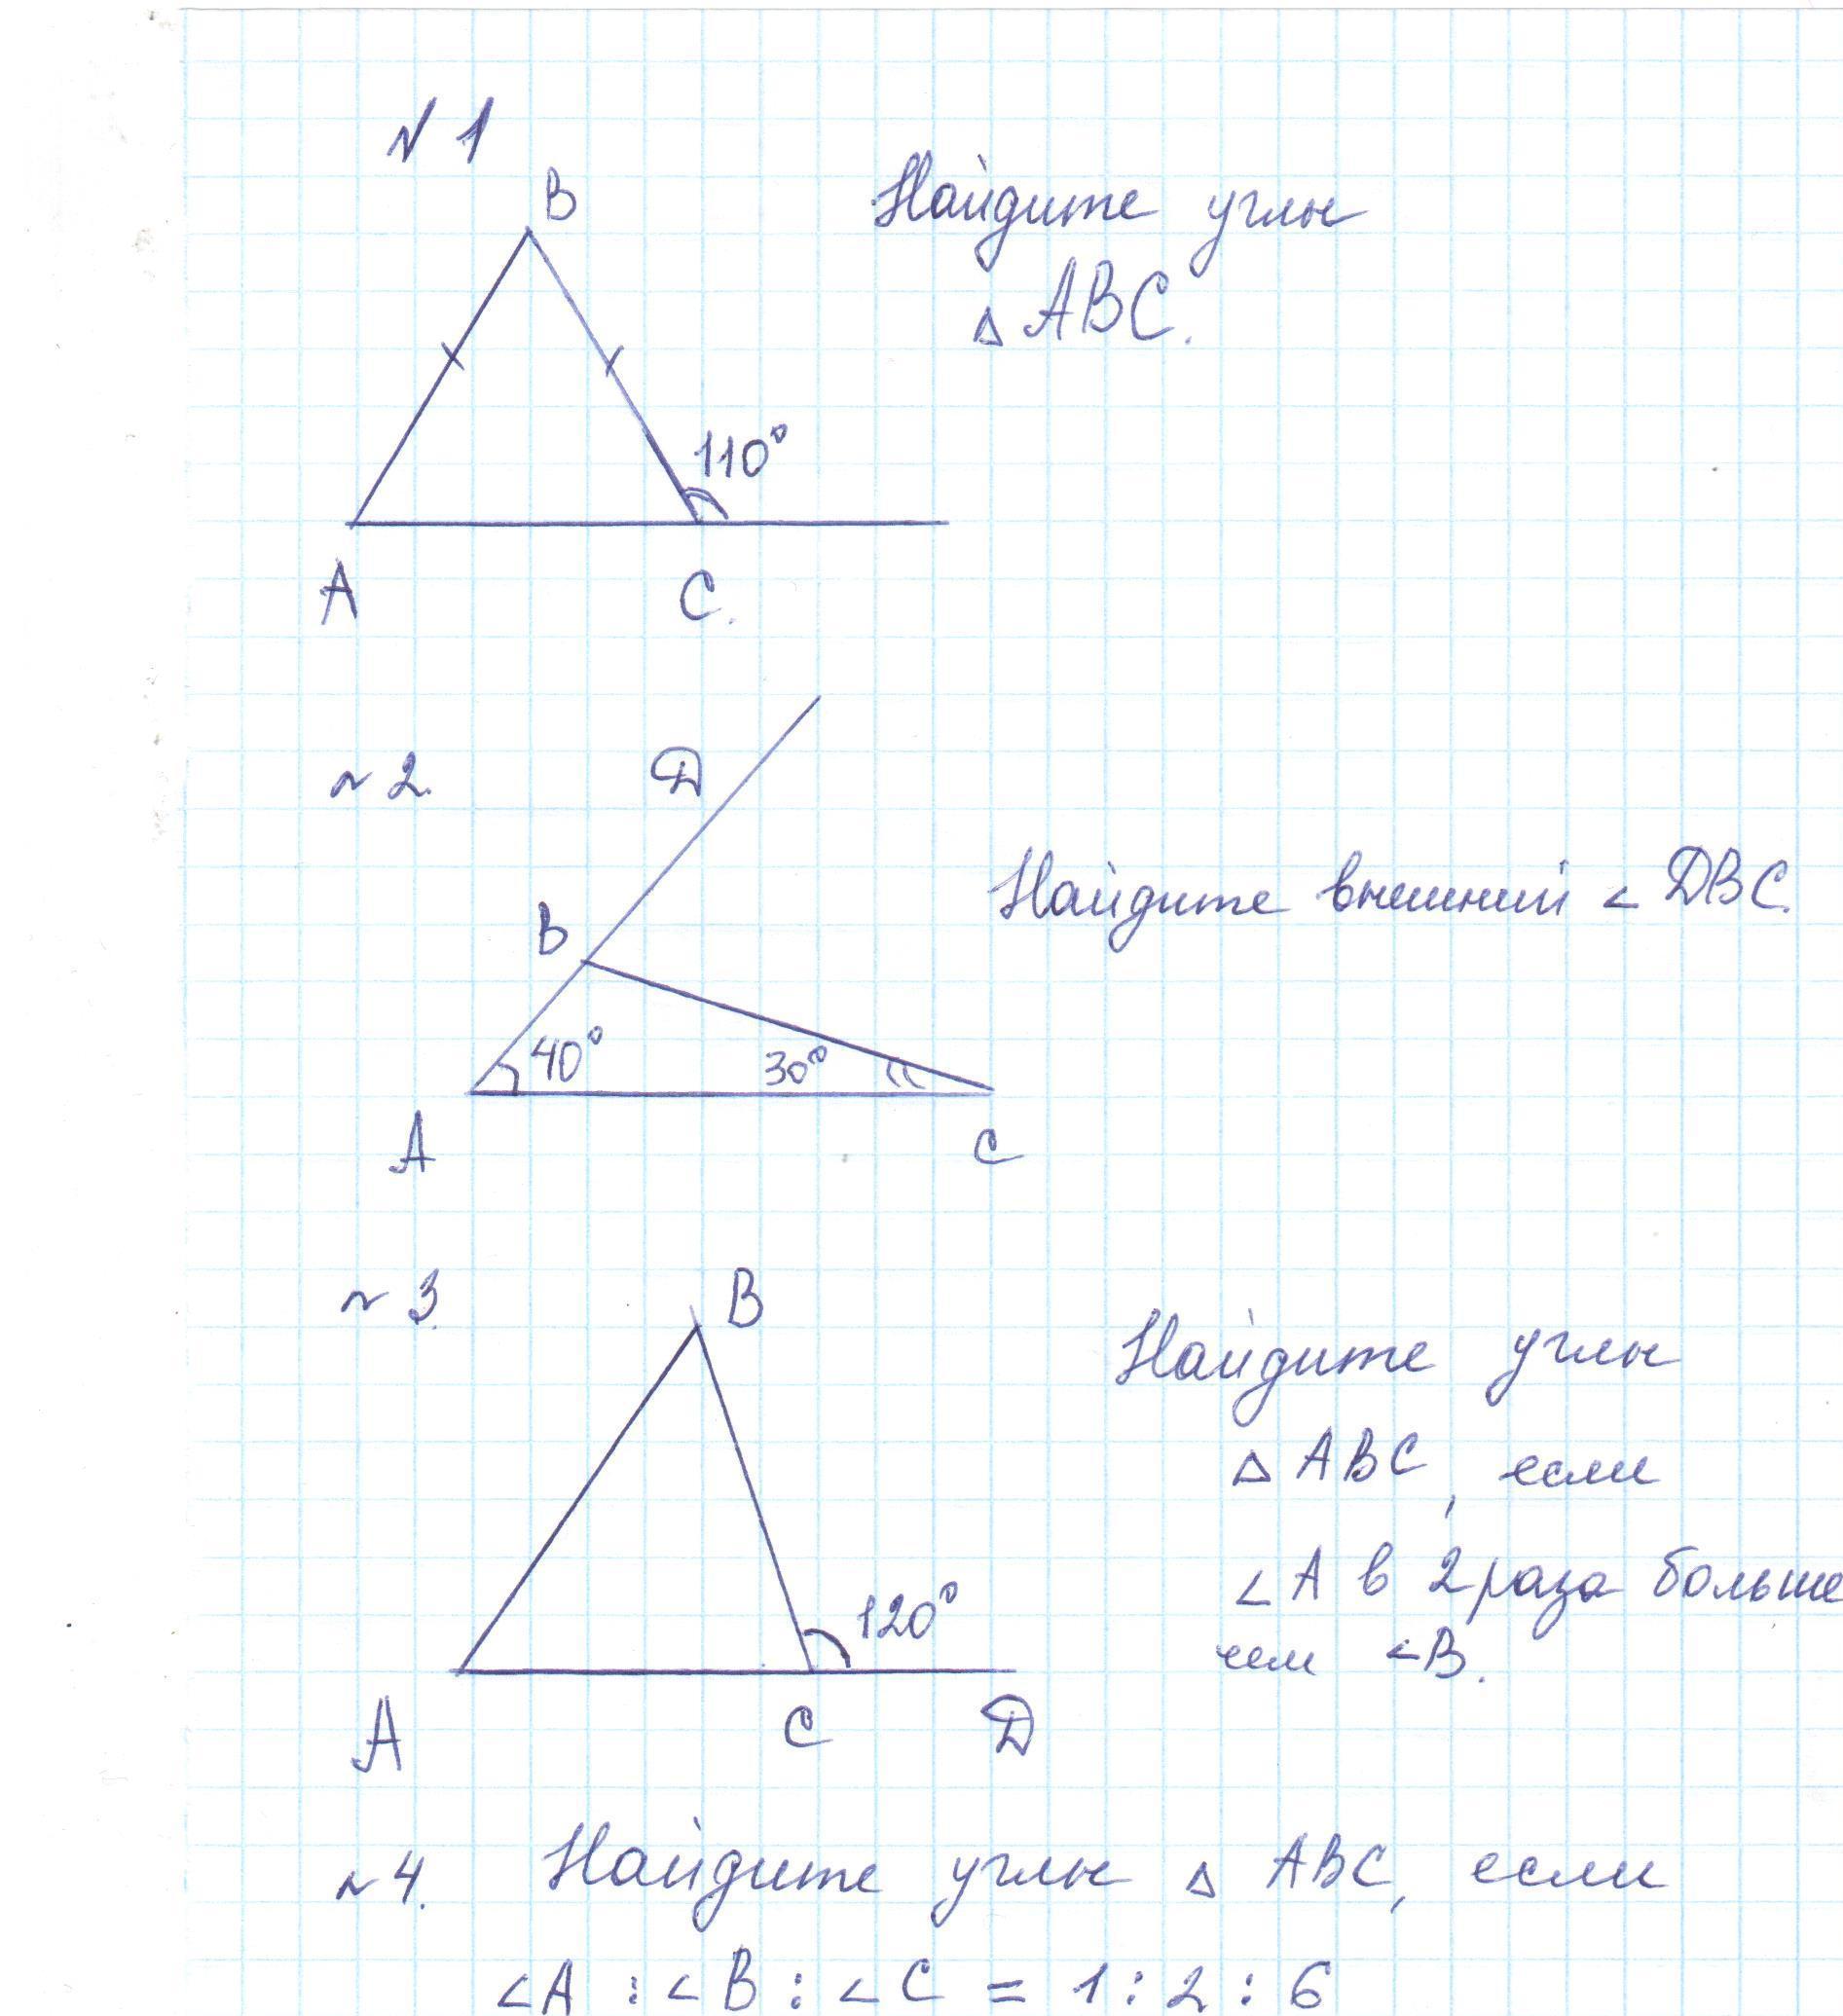 № 1
B
Найдите углы
△ ABC.
110°
A
C.
№ 2.
D
Найдите внешний ∠ DBC.
B
40°
30°
A
C
№ 3.
B
Найдите углы
△ ABC, если
∠A в 2 раза больше
чем ∠B.
120°
A
C
D
№ 4. Найдите углы △ ABC, если
∠A : ∠B : ∠C = 1 : 2 : 6